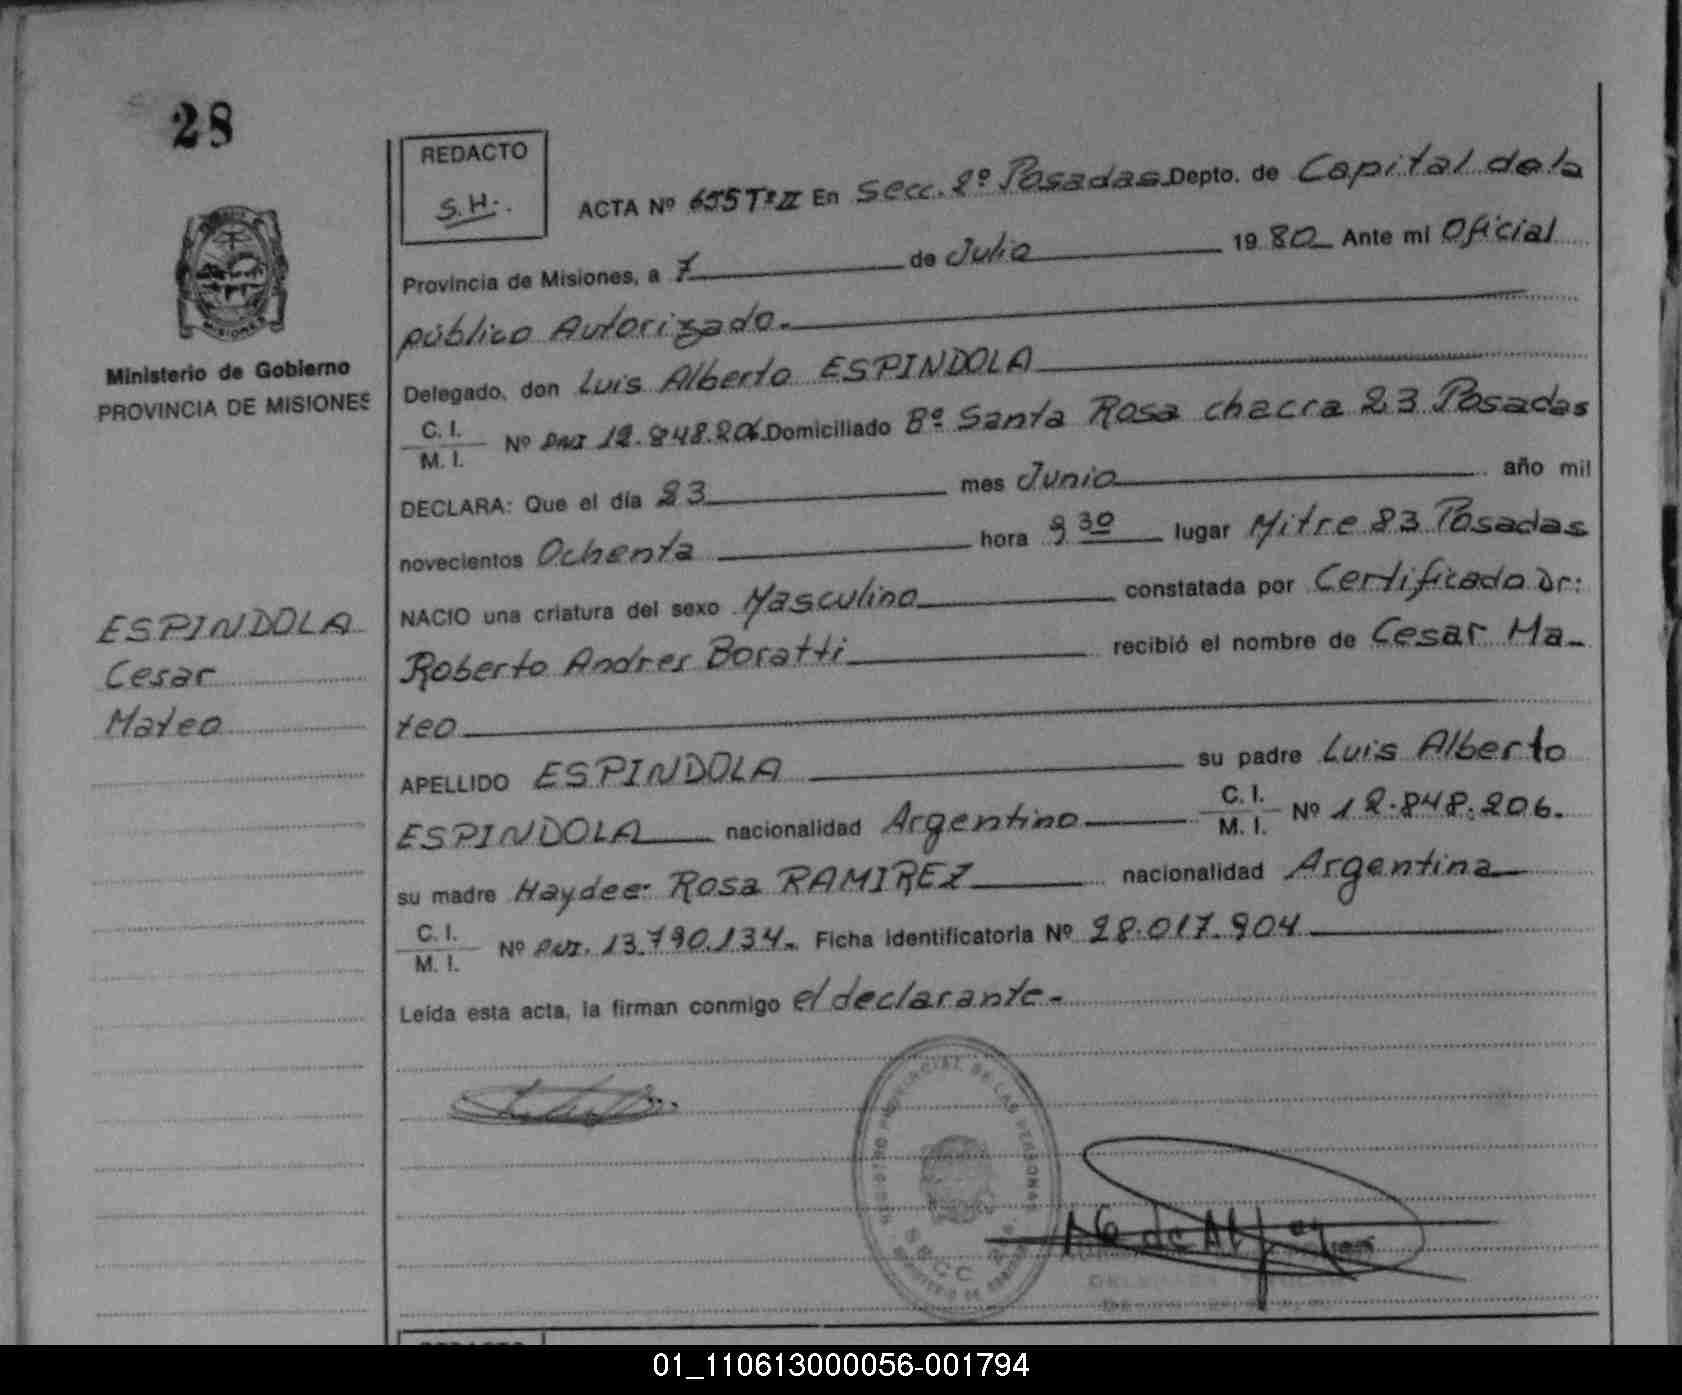 28
REDACTO
S.H.
ACTA Nº 655 Tº II En Secc. 2º Posadas Depto. de Capital de la
Provincia de Misiones, a 7 de Julio 1980 Ante mi Oficial
público Autorizado.
Delegado, don Luis Alberto ESPINDOLA
C. I.
M. I. Nº DNI 12.848.206 Domiciliado Bº Santa Rosa chacra 23 Posadas
DECLARA: Que el día 23 mes Junio año mil
novecientos Ochenta hora 9 30 lugar Mitre 83 Posadas
NACIO una criatura del sexo Masculino constatada por Certificado Dr:
Roberto Andres Boratti recibió el nombre de Cesar Ma-
teo
APELLIDO ESPINDOLA su padre Luis Alberto
ESPINDOLA nacionalidad Argentino C. I.
M. I. Nº 12.848.206.
su madre Haydee Rosa RAMIREZ nacionalidad Argentina
C. I.
M. I. Nº DNI. 13.790.134. Ficha identificatoria Nº 28.017.904
Leída esta acta, la firman conmigo el declarante.
MISIONES
Ministerio de Gobierno
PROVINCIA DE MISIONES
ESPINDOLA
Cesar
Mateo
REGISTRO PROVINCIAL DE LAS PERSONAS
SECC
REDACTO
01_110613000056-001794